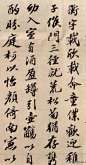 衡宇載欣載奔童僕歡迎稚
子候門三徑就荒松菊猶存攜
幼入室有酒盈樽引壺觴以自
酌眄庭柯以怡顏倚南窗以